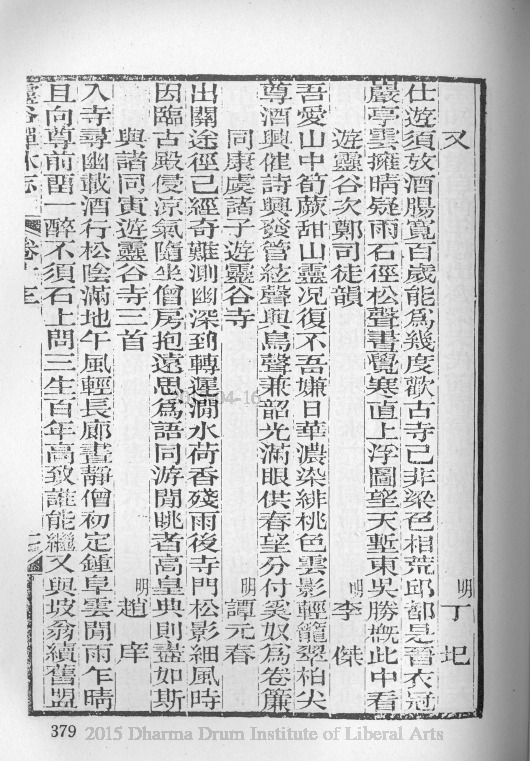 又
明丁圯
仕遊須放酒腸寬百歲能爲幾度歡古寺已非梁色相荒邱都是晉衣冠
巖亭雲擁晴疑雨石徑松聲晝覺寒直上浮圖望天塹東吳勝槪此中看
遊靈谷次鄭司徒韻
明李傑
吾愛山中筍蕨甜山靈况復不吾嫌日華濃染緋桃色雲影輕籠翠柏尖
尊酒興催詩興發管絃聲與鳥聲兼韶光滿眼供春望分付奚奴爲卷簾
同康虞諸子遊靈谷寺
明譚元春
出關途徑已經奇難測幽深到轉遲澗水荷香殘雨後寺門松影細風時
因臨古殿侵涼氣隨坐僧房抱遠思爲語同游閒眺者高皇典則盡如斯
與諸同寅遊靈谷寺三首
明趙庠
入寺尋幽載酒行松陰滿地午風輕長廊晝靜僧初定鍾阜雲閒雨乍晴
且向尊前留一醉不須石上問三生百年高致誰能繼又與坡翁續舊盟
靈谷禪林志
卷十三
379
2015 Dharma Drum Institute of Liberal Arts